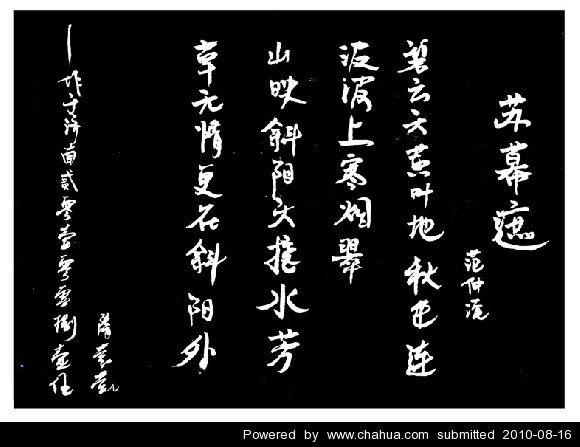 苏幕遮
范仲淹
碧云天黄叶地秋色连
波波上寒烟翠
山映斜阳天接水芳
草无情更在斜阳外
作于济南贰零壹零
Powered by www.chahua.com submitted 2010-08-16